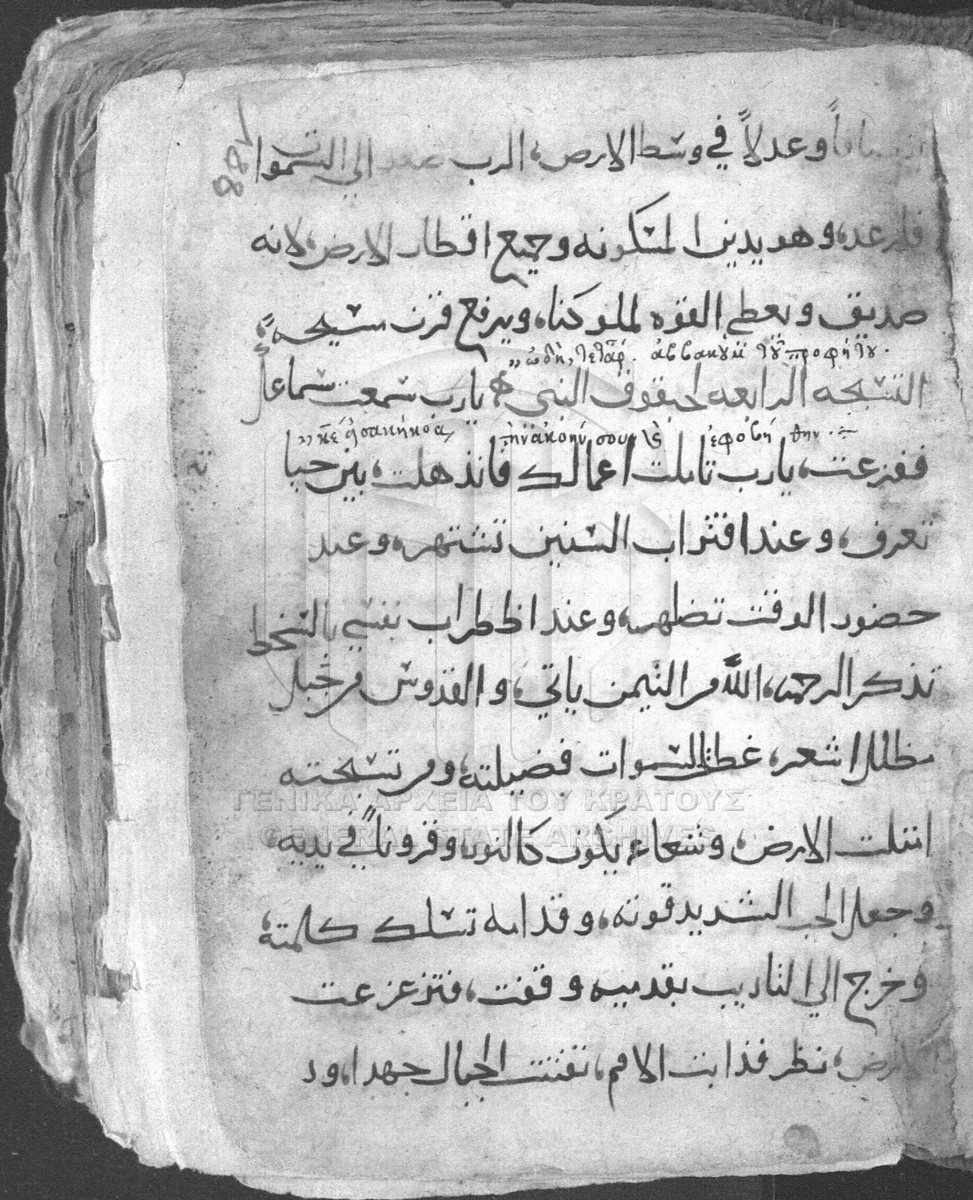 وعدلاً في وسط الارض، الرب صعد الي السموات
881
فارعد، وهو يدين المسكونه وجميع اقطار الارض، لانه
صديق ويعطي القوه لملوكنا، ويرفع قرن مسيحه،
ᾠδὴ, τετάρ. ἀββακοὺμ τοῦ προφήτου.
التسبحه الرابعه لحبقوق النبي يارب سمعت سماعك
κε εἰσακήκοα, τὴν ἀκοήν σου ἐφοβήθην
ففزعت، يارب تاملت اعمالك فانذهلت، بين حيا
تعرف، وعند اقتراب السنين تشتهر، وعند
حضور الوقت تظهر، وعند اظطراب نفسي بالسخط
تذكر الرحمه، الله من التيمن ياتي، والقدوس من جبل
مظلل اشعر، غطا السموات فضيلته، ومن تسبحته
امتلت الارض، وشعاعه يكون كالنور، وقروناً في يديه
وجعل الحب الشديد قوته، وقدامه تسلك كلمته،
وخرج الي التاديب بقدميه وقفت، فتزعزعت
الارض، نظر فذابت الامم، تفتتت الجبال جهدا، ود
ΓΕΝΙΚΑ ΑΡΧΕΙΑ ΤΟΥ ΚΡΑΤΟΥΣ
GENERAL STATE ARCHIVES